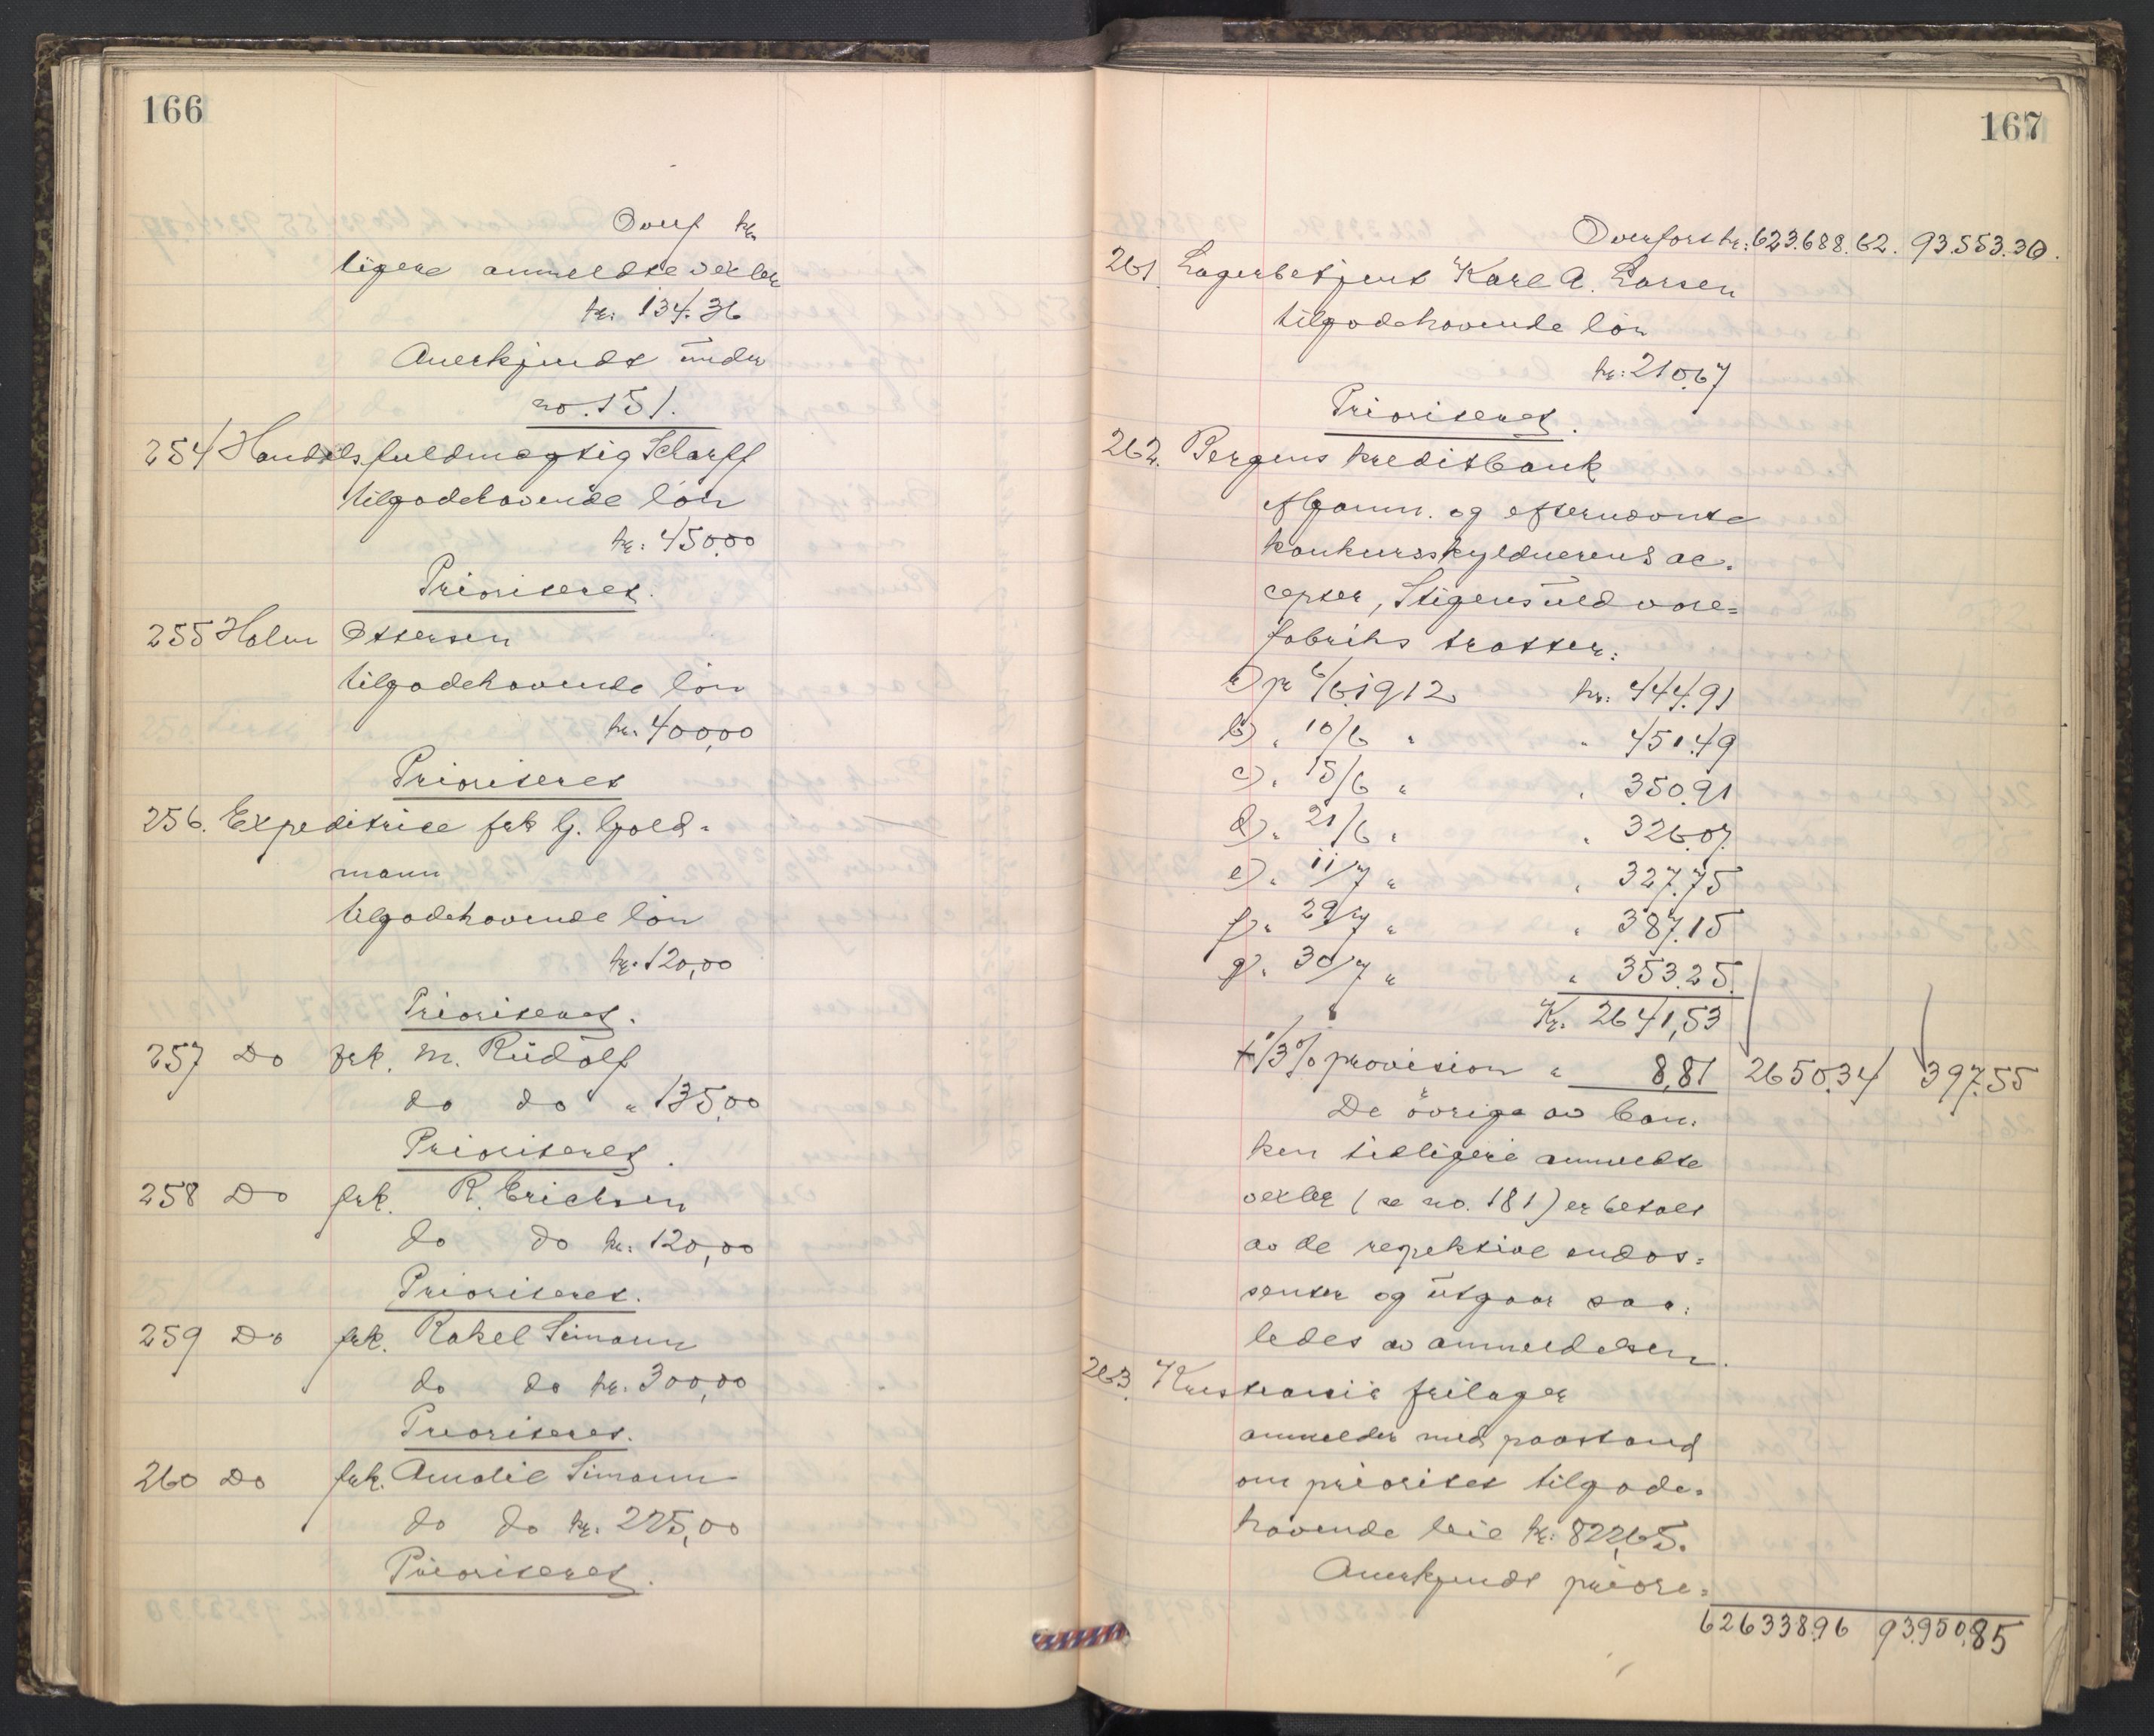 166
Overf kr.
ligere anmeldte vexler
kr: 134.36
Anerkjendt under
no. 151.
254 Handelsfuldmægtig Scharff
tilgodehavende løn
kr: 450.00
Prioriteret.
255 Halm Ottersen
tilgodehavende løn
kr. 400,00
Prioriteret
256. Expeditrice frk G. Gold-
mann
tilgodehavende løn
kr. 120,00
Prioriteret.
257 Do frk. M. Rudolf
do do " 135,00
Prioriteret.
258 Do frk. R. Erichsen
do do kr. 120,00
Prioriteret.
259 Do frk. Rakel Simann
do do kr. 300,00
Prioriteret.
260 Do frk. Amalie Simann
do do kr. 225,00
Prioriteret.
167
Overført kr: 623.688.62. 93.553.30.
261. Lagerbetjent Karl A. Larsen
tilgodehavende løn
kr: 210.67
Prioriteret.
262. Bergens Kreditbank
ifl. og efternævnte
konkursskyldnerens ac-
cepter, Stigens uldvare=
fabriks tratter:
a) pr 6/6 1912 kr: 444.91
b) " 10/6 " " 451.49
c) " 15/6 " " 350.91
d) " 21/6 " " 326.07
e) " 11/7 " " 327.75
f) " 29/7 " " 387.15
g) " 30/7 " " 353.25.
Kr. 2641,53
+ 1/3 % provision " 8,81 2650.34 397.55
De øvrige av ban-
ken tidligere anmeldte
vexler (se no. 181) er betalt
av de repektive endos=
senter og utgaar saa-
ledes av anmeldelsen.
263. Kristiania frilager
anmelder med paastand
om prioritet tilgode-
havende leie kr: 822,65.
Anerkjendt priori=
626338.96 93.950.85